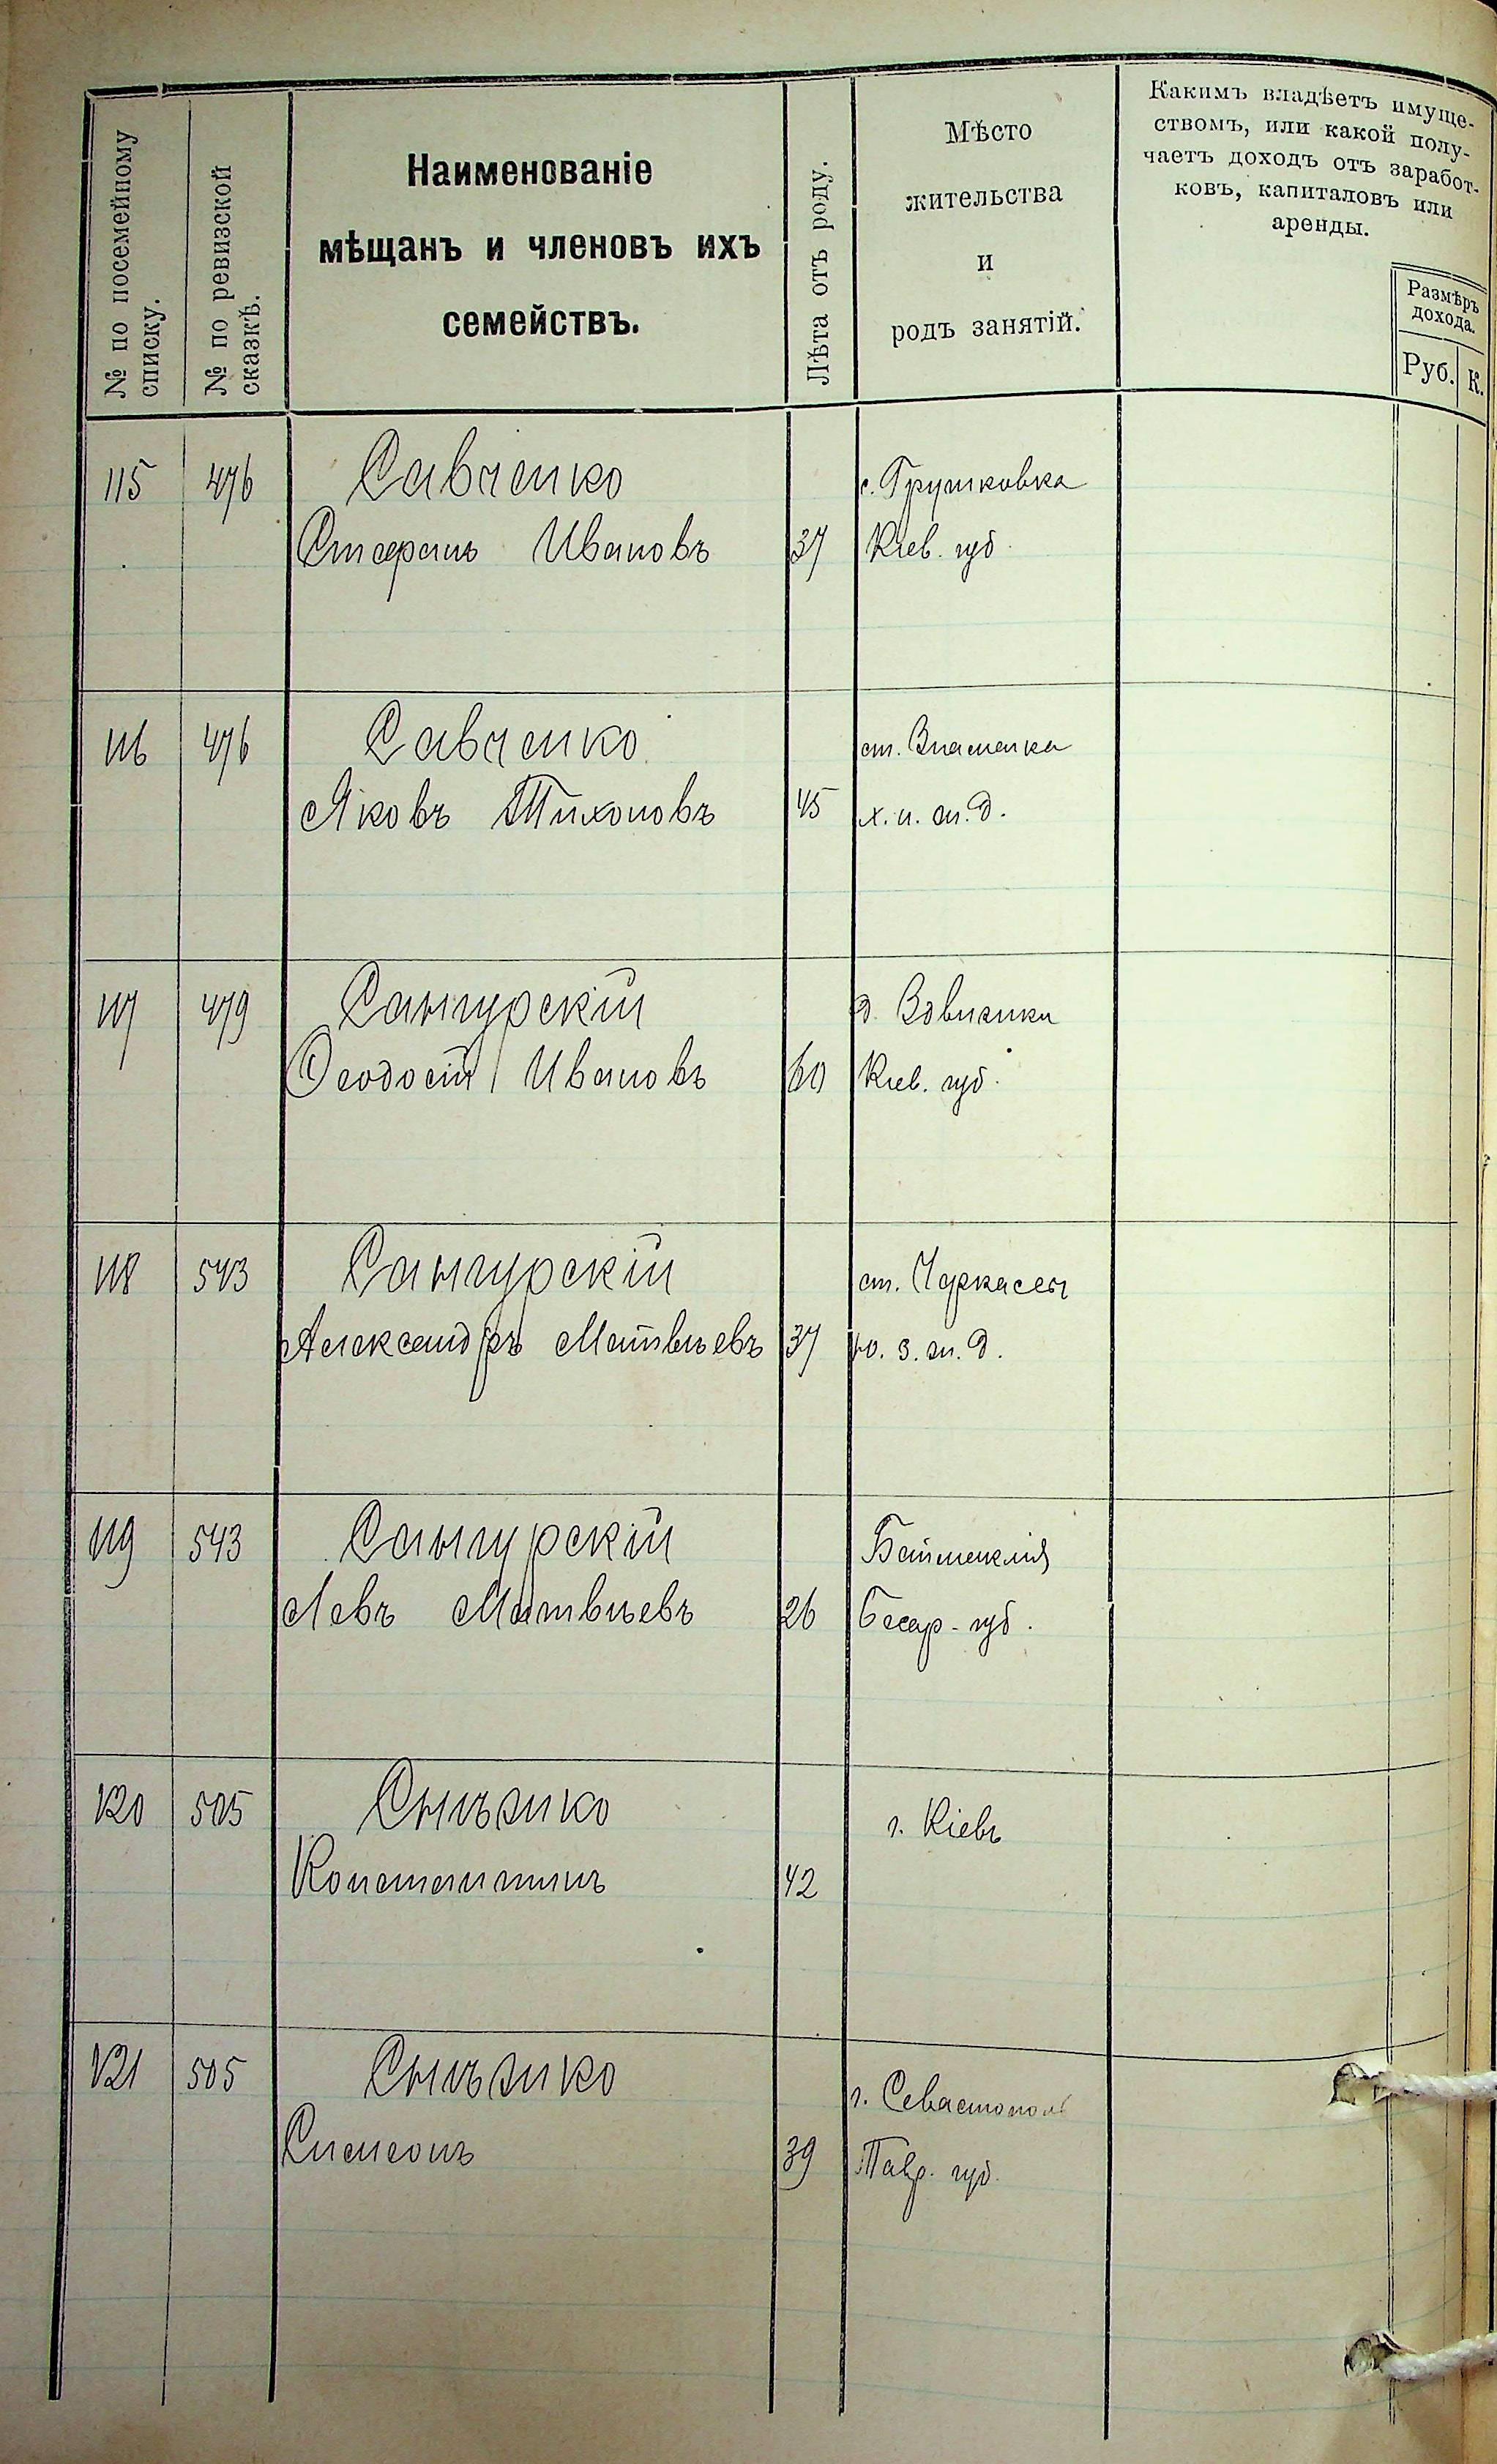 № по посемейному
списку.
№ по ревизской
сказкѣ.
Наименованіе
мѣщанъ и членовъ ихъ
семействъ.
Лѣта отъ роду.
Мѣсто
жительства
и
родъ занятій.
Какимъ владѣетъ имуще-
ствомъ, или какой полу-
чаетъ доходъ отъ заработ-
ковъ, капиталовъ или
аренды.
Размѣръ
дохода.
Руб. К.
115 476 Савченко с. Грушковка
Стефанъ Ивановъ 37 Кіев. губ.
116 476 Савченко ст. Знаменка
Яковъ Тихоновъ 45 х. н. ж. д.
117 479 Сангурскій д.
Ѳеодосій Ивановъ 60 Кіев. губ.
118 543 Сангурскій ст. Черкассы
Александръ Матвѣевъ 37 ю. з. ж. д.
119 543 Сангурскій
Левъ Матвѣевъ 26 Бессар. губ.
120 505 г. Кіевъ
Константинъ 42
121 505 г. Севастополь
Симеонъ 39 Тавр. губ.